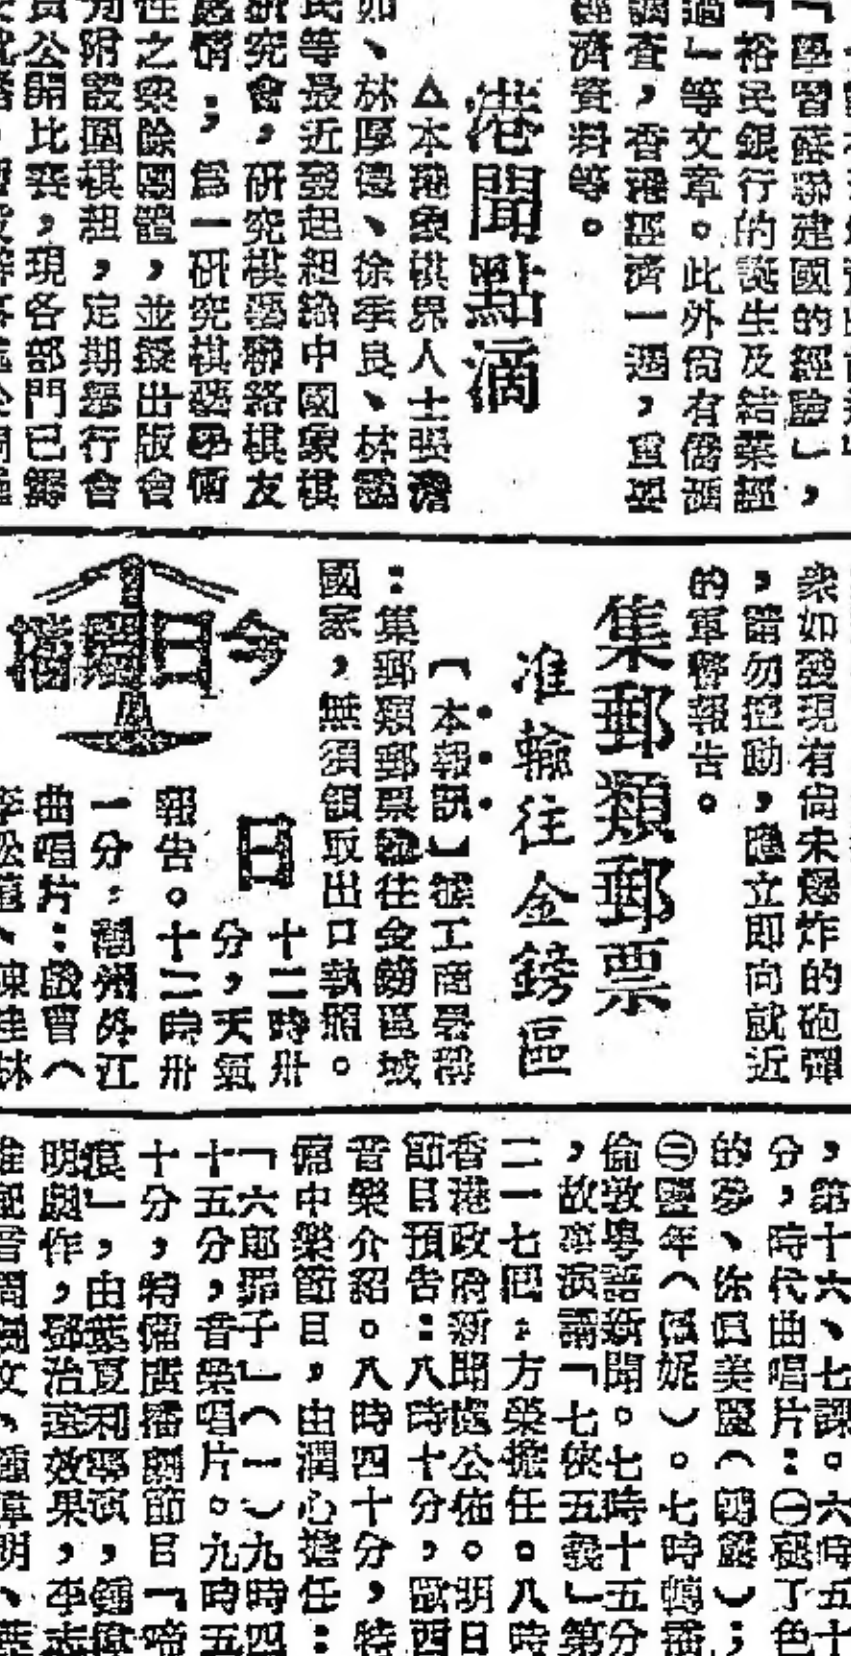 「學習蘇聯建國的經驗」，
「裕民銀行的誕生及結業經
過」等文章。此外尚有僑滙
調查，香港經濟一週，重要
經濟資料等。
港聞點滴
△本港象棋界人士張
如、林厚德、徐季良、林
民等最近發起組織中國象棋
研究會，研究棋藝聯絡棋友
感情；為一研究棋藝學術
性之業餘團體，並擬出版會
附設圍棋組，定期舉行會
員公開比賽，現各部門已籌
衆如發現有尚未爆炸的砲彈
，請勿挪動，應立即向就近
的軍警報告。
集郵類郵票
准輸往金鎊區
【本報訊】據工商署稱
：集郵類郵票輸往金鎊區域
國家，無須領取出口執照。
今日
日
十二時卅
分，天氣
報告。十二時卅
一分：潮州外江
曲唱片：戲曹（
李松 、陳佳林
，第十六、七課。六時五十
分，時代曲唱片：㊀褪了色
的夢、你真美麗（ ）；
㊁豐年（佩妮）。七時轉播
倫敦粵語新聞。七時十五分
，故事演講「七俠五義」第
二一七回：方榮擔任。八時
香港政府新聞處公佈。明日
節目預告：八時十分，歐西
音樂介紹。八時四十分，特
備中樂節目，由潤心擔任：
「六郎罪子」（一）九時四
十五分，音樂唱片。九時五
十分，特備廣播劇節目「啼
痕」，由葉夏利導演，鍾偉
明劇作，鄧治遠效果，李志